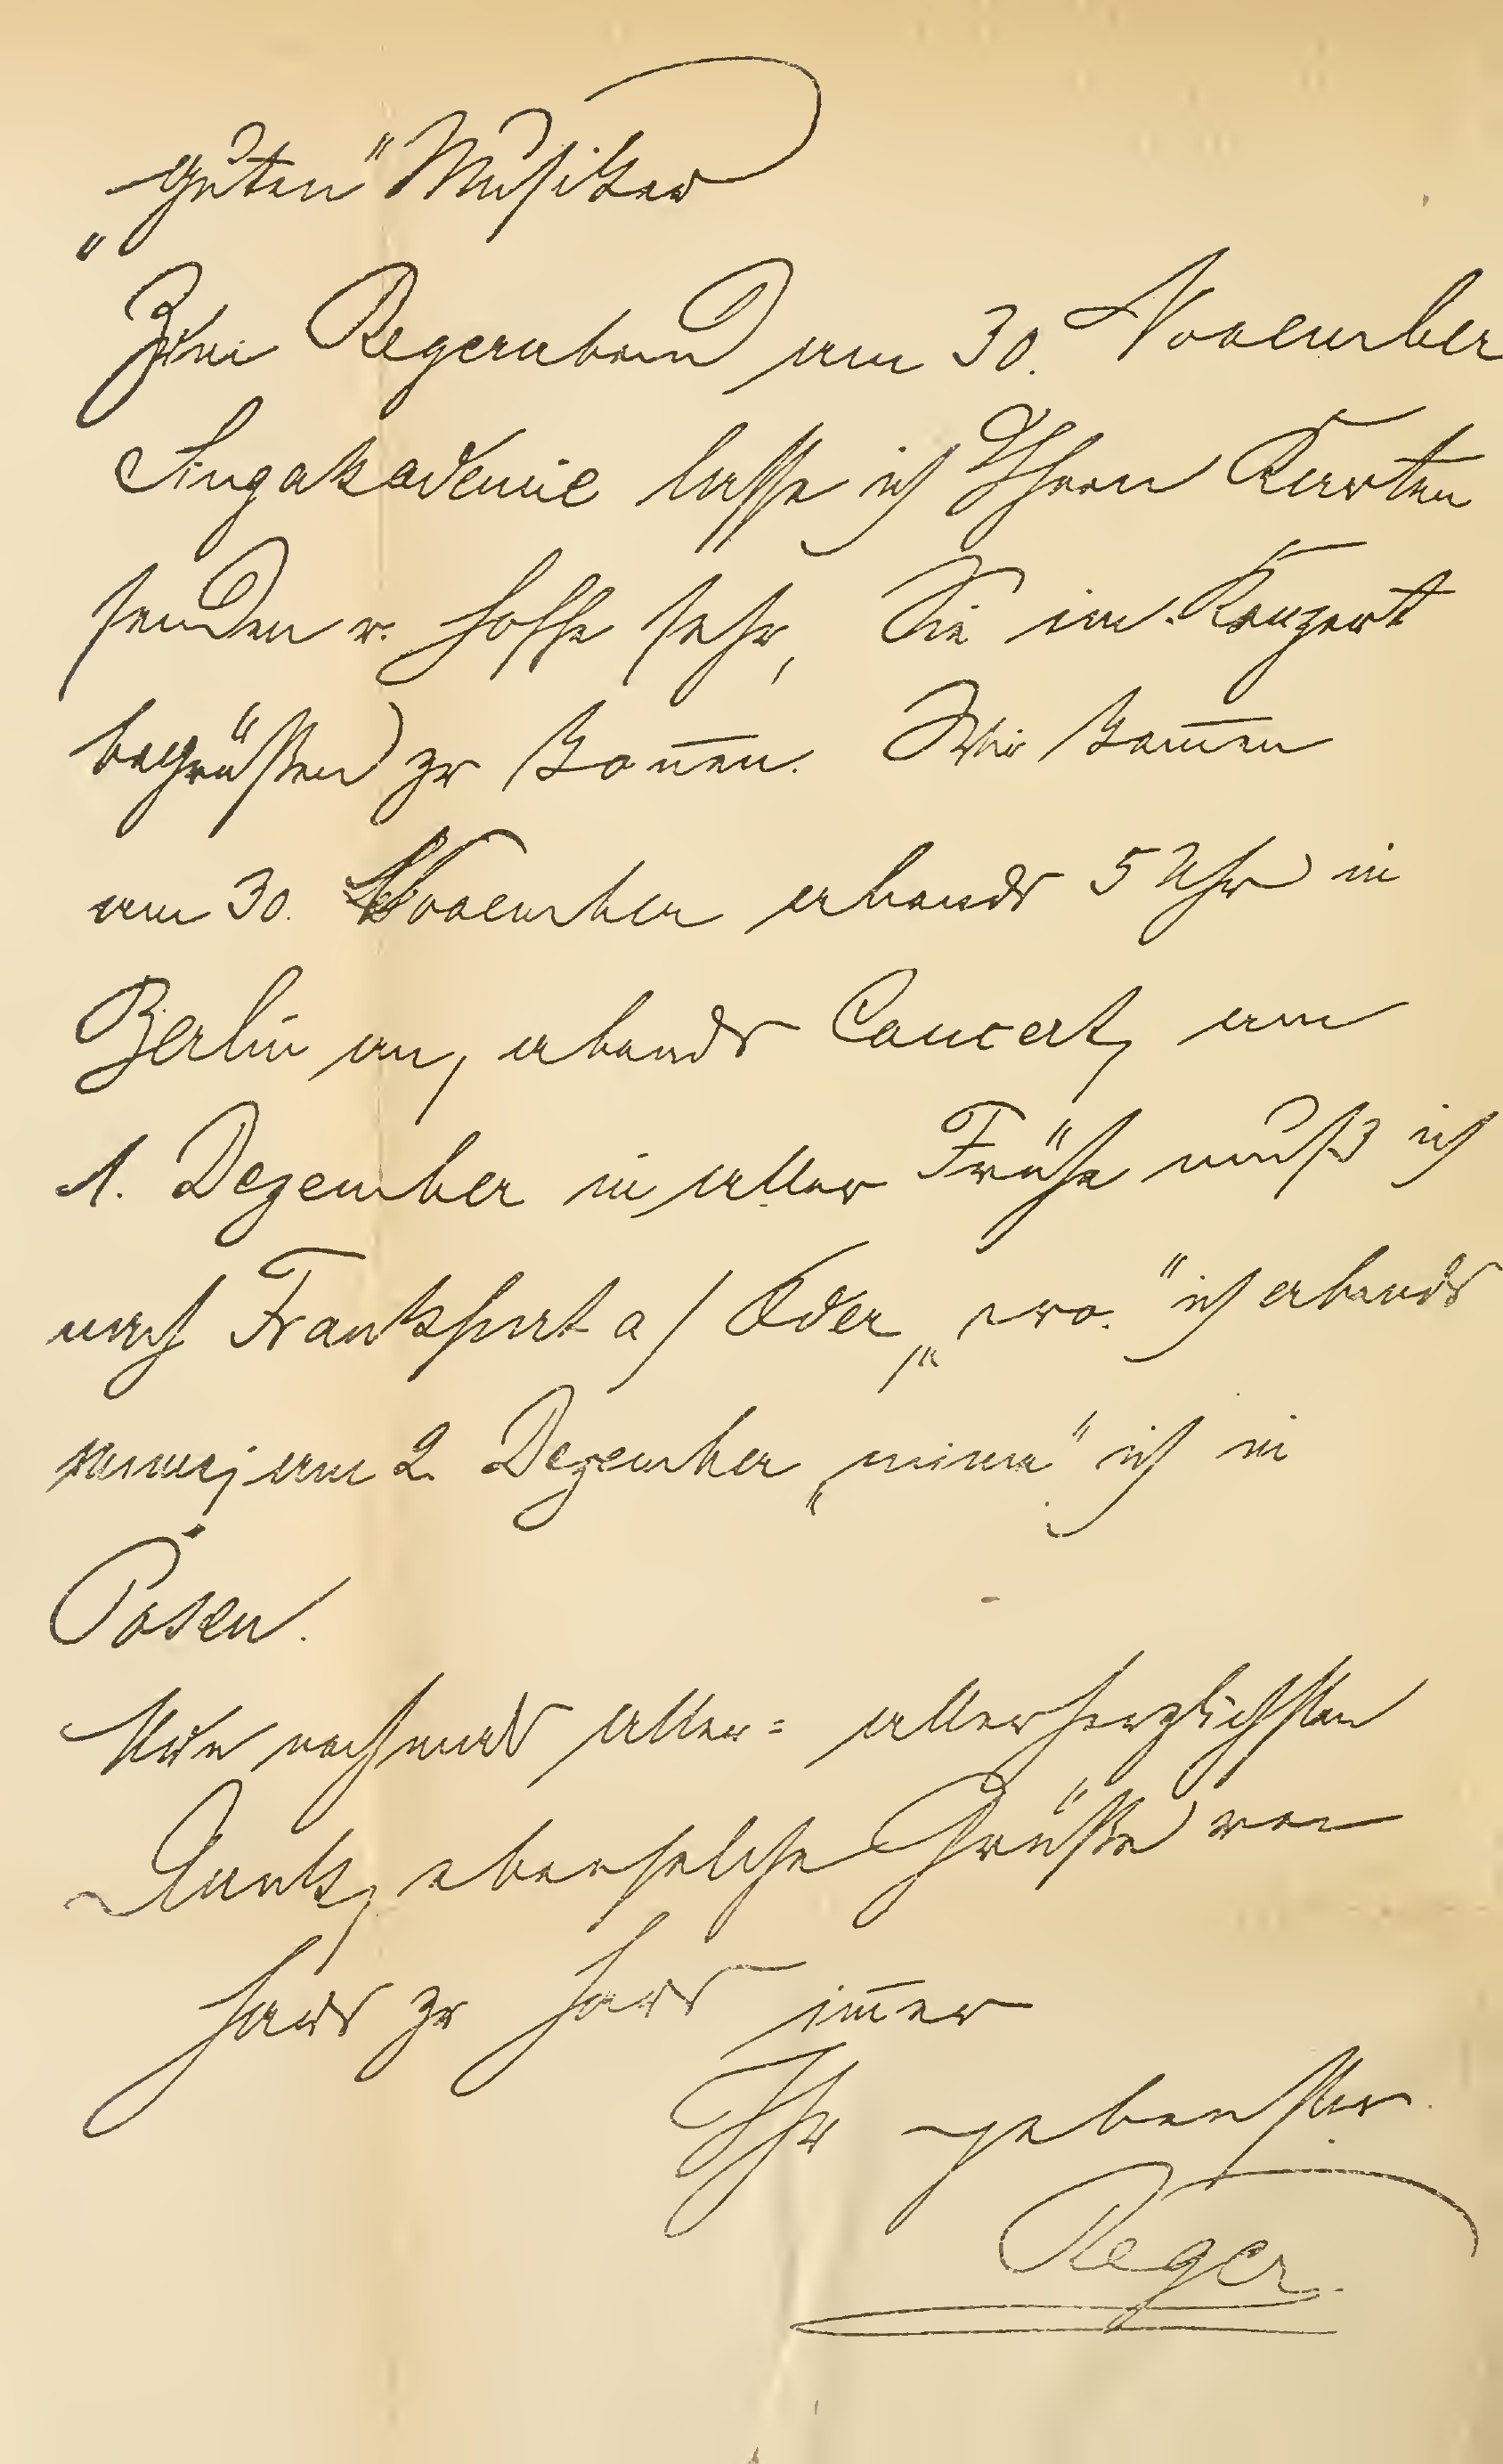 „guten" Musiker
Zum Regerabend am 30. November
Singakademie lasse ich Ihnen Karten
senden u. hoffe sehr, Sie im Konzert
begrüßen zu kön̄en. Wir kom̄en
am 30. November abends 5 Uhr in
Berlin an, abends Concert, am
1. Dezember in aller Frühe muß ich
nach Frankfurt a/Oder, „wo" ich abends
mime; am 2. Dezember „mime" ich in
Posen.
Nun nochmals aller= allerherzlichsten
Dank, ebensolche Grüße von
Haus zu Haus im̄er
Ihr ergebenster
Reger.